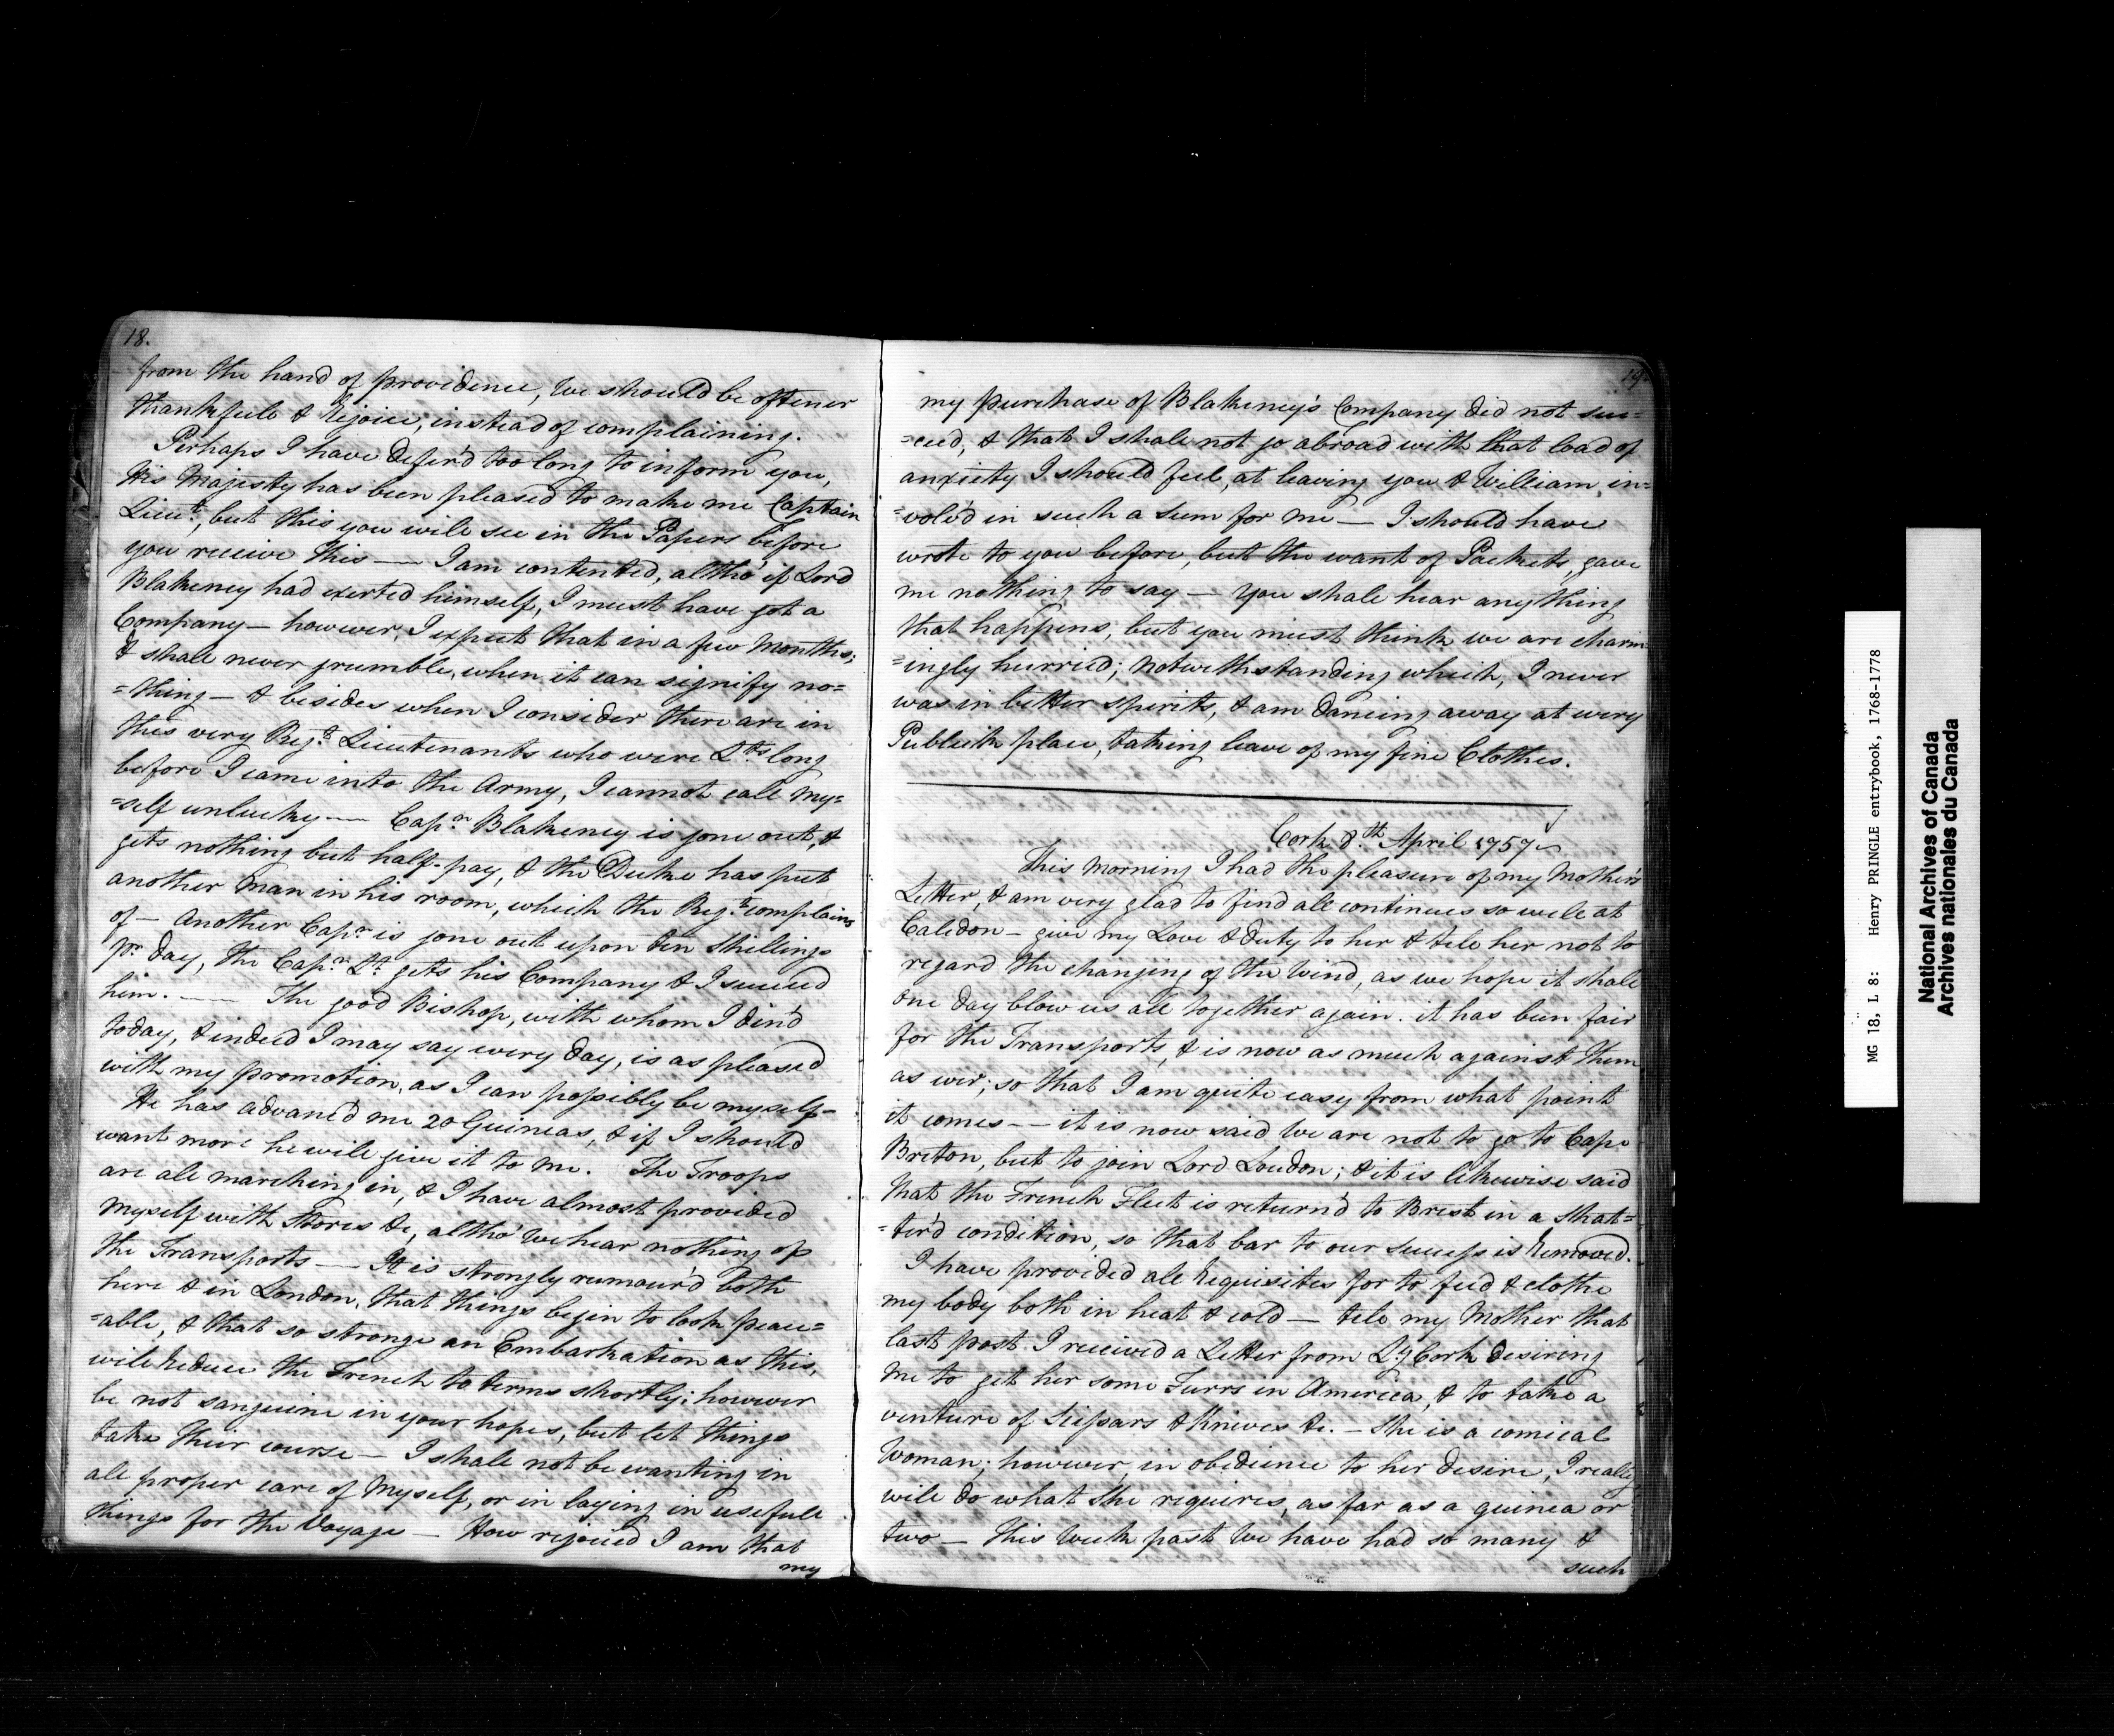 18.
from the hand of providence, we should be oftener
thankfull & rejoice, instead of complaining.
Perhaps I have defer'd too long to inform you,
His Majesty has been pleased to make me Captain
Lieut., but this you will see in the Papers before
you receive this — I am contented, altho' if Lord
Blakeney had exerted himself, I must have got a
Company — however, I expect that in a few Months;
& shall never grumble, when it can signify no=
=thing — & besides when I consider there are in
this very Regt. Lieutenants who were Lts. long
before I came into the Army, I cannot call my=
=self unlucky — Capn. Blakeney is gone out, &
gets nothing but half-pay, & the Duke has put
another Man in his room, which the Regt. complains
of — Another Capn. is gone out upon ten Shillings
pr. day, the Capn. Lt. gets his Company & I succeed
him. — The good Bishop, with whom I din'd
today, & indeed I may say every day, is as pleased
with my promotion, as I can possibly be myself —
He has advanc'd me 20 Guineas, & if I should
want more he will give it to me. The Troops
are all marching in, & I have almost provided
myself with Stores &c, altho' we hear nothing of
the Transports — It is strongly rumour'd both
here & in London, that things begin to look peace=
=able, & that so stronge an Embarkation as this,
will reduce the French to terms shortly; however
be not sanguine in your hopes, but let things
take their course — I shall not be wanting in
all proper care of Myself, or in laying in usefull
things for the Voyage — How rejoiced I am that
my
19.
my purchase of Blakeney's Company did not suc=
=ceed, & that I shall not go abroad with that load of
anxiety I should feel, at leaving you & William, in=
=volv'd in such a sum for me — I should have
wrote to you before, but the want of Packets, gave
me nothing to say — You shall hear any thing
that happens, but you must think we are charm=
=ingly hurried; notwithstanding which, I never
was in better spirits, & am dancing away at every
Publick place, taking leave of my fine Clothes.
Cork 8.th April 1757
This morning I had the pleasure of my Mother's
Letter, & am very glad to find all continues so well at
Caledon — give my Love & duty to her & tell her not to
regard the changing of the Wind, as we hope it shall
one day blow us all together again. it has been fair
for the Transports, & is now as much against them
as ever; so that I am quite easy from what point
it comes — it is now said we are not to go to Cape
Breton, but to join Lord Loudon; & it is likewise said
that the French Fleet is return'd to Brest in a shat=
=ter'd condition, so that bar to our success is removed.
I have provided all requisites for to feed & clothe
my body both in heat & cold — tell my Mother that
last post I received a Letter from Ly. Cork desiring
me to get her some Furrs in America, & to take a
venture of Scissars & Knives &c. — She is a comical
Woman; however, in obedience to her desire, I really
will do what she requires, as far as a guinea or
two — This Week past we have had so many &
such
MG 18, L 8: Henry PRINGLE entrybook, 1768-1778
National Archives of Canada
Archives nationales du Canada